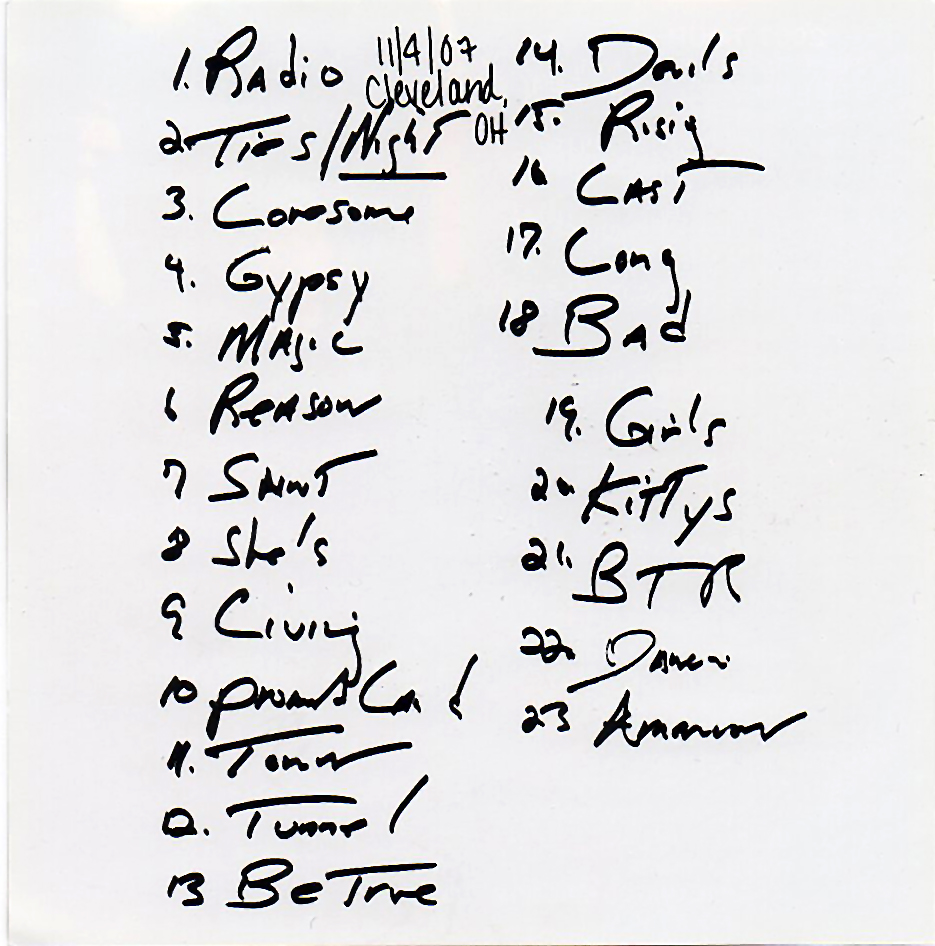 1. Radio
11/4/07
Cleveland,
OH
2. Ties/Night
3. Lonesome
4. Gypsy
5. Magic
6 Reason
7 Saint
8 She's
9 Living
10 Land
11. Town
12. Tunnel
13 Be True
14. Devils
15. Rising
16 Last
17. Long
18 Bad
19. Girls
20. Kittys
21. BTR
22. Dancin
23 American